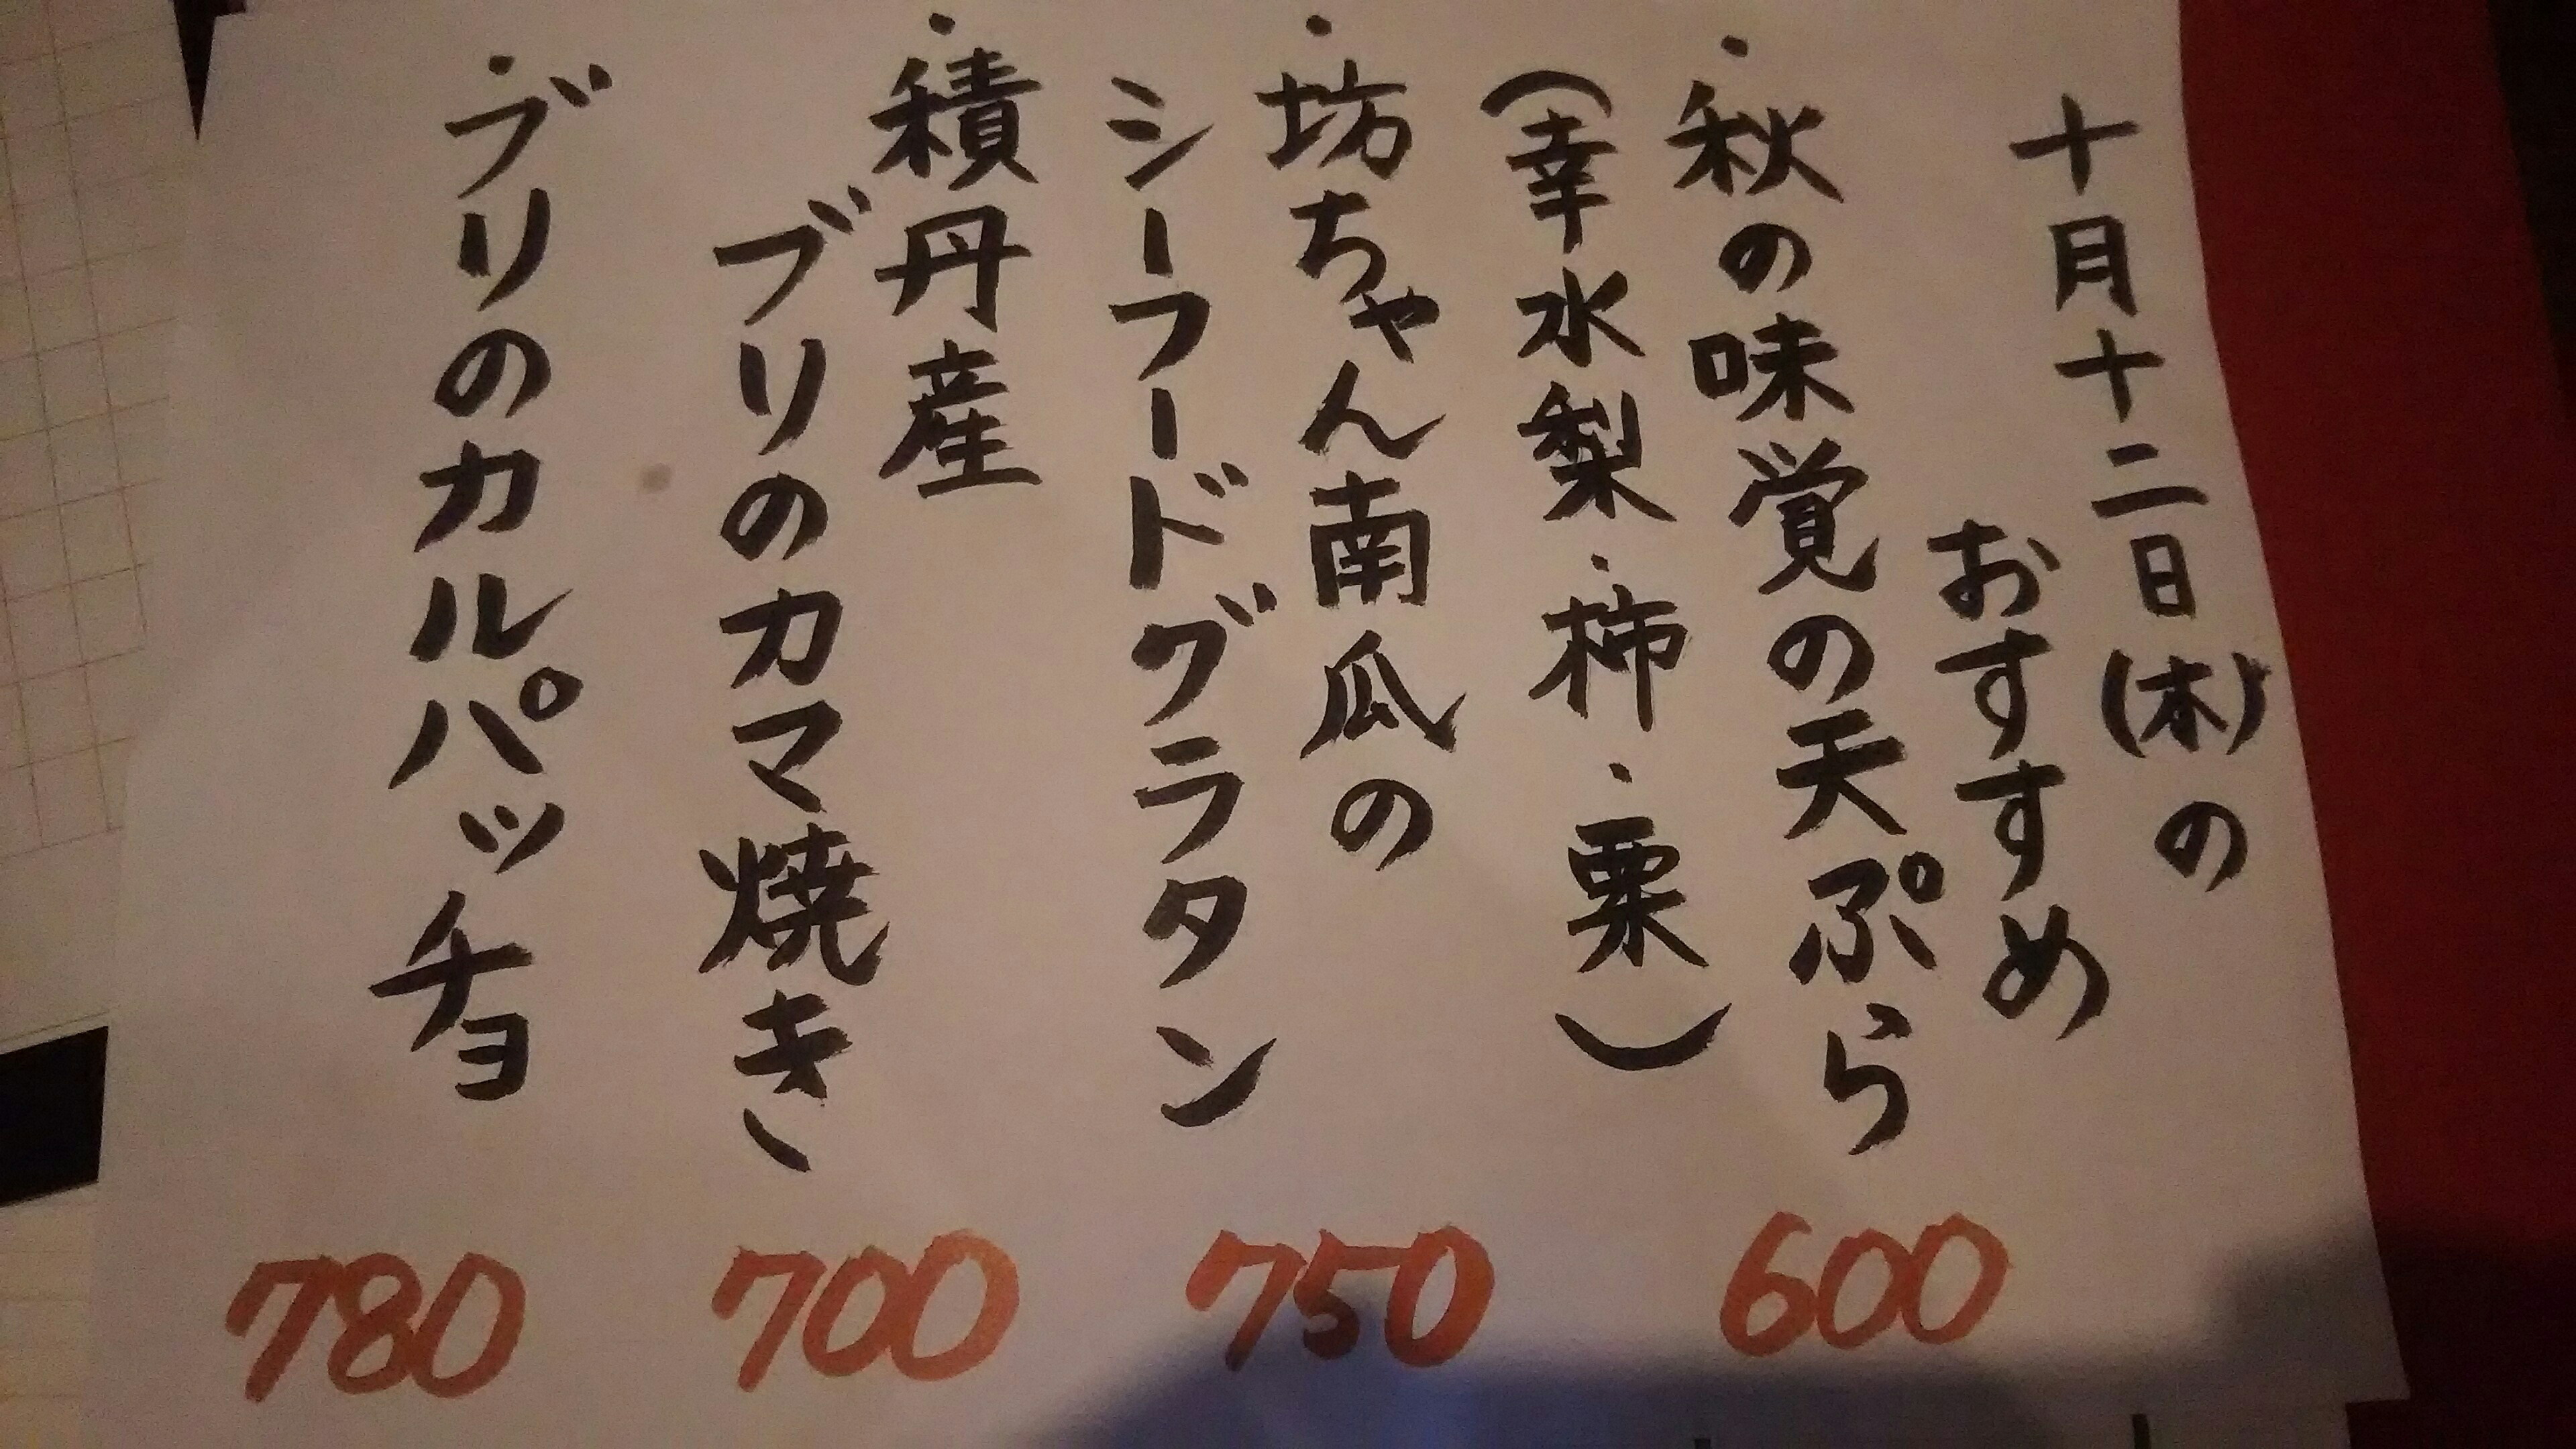 十月十二日(木)の
おすすめ
・秋の味覚の天ぷら
(幸水梨・柿・栗)
600
・坊ちゃん南瓜の
シーフードグラタン
750
・積丹産
ブリのカマ焼き
700
・ブリのカルパッチョ
780